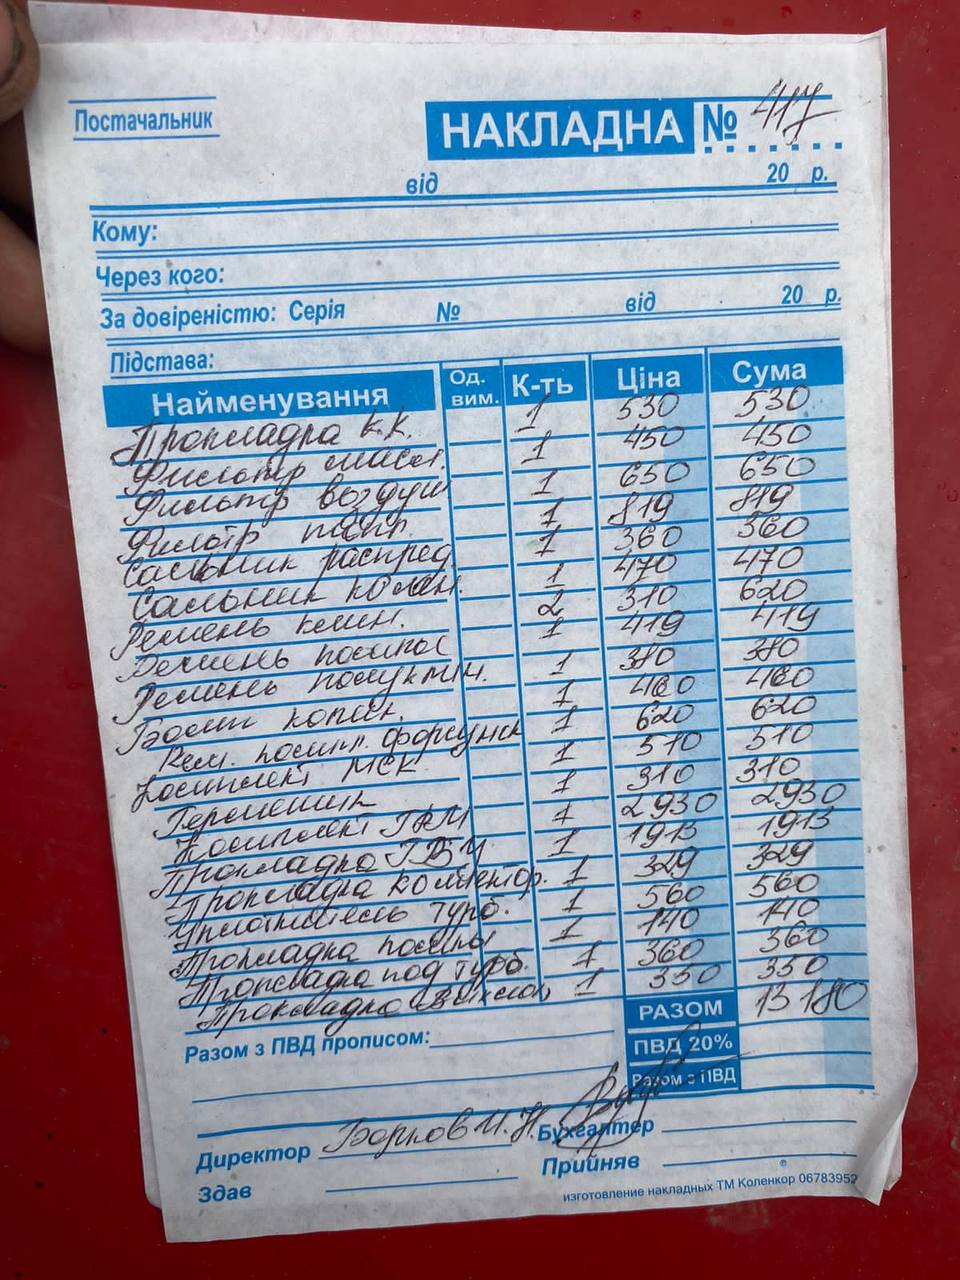 Постачальник
НАКЛАДНА № 417
від 20 р.
Кому:
Через кого:
За довіреністю: Серія № від 20 р.
Підстава:
Найменування Од. вим. К-ть Ціна Сума
Прокладка К.К. 1 530 530
Фильтр масл. 1 450 450
Фильтр воздуш 1 650 650
Филтр топл. 1 819 819
Сальник распред. 1 360 360
Сальник колен. 1 470 470
Ремень клин. 2 310 620
Ремень помпы 1 419 419
Ремень полуклин. 1 380
Болт колен. 1 460 460
Рем. компл. форсунк 1 620 620
Комплект МСК 1 510 510
Герметик 1 310 310
Комплект ГРМ 1 2930 2930
Прокладка ГБЦ 1 1913 1913
Прокладка коллектор. 1 329 329
Уплотнитель турб. 1 560 560
Прокладка помпы 1 140 140
Прокладка под турб. 1 360 360
Прокладка выхлоп, 1 350 350
РАЗОМ 13180
Разом з ПВД прописом: ПВД 20%
Разом з ПВД
Директор Борков И. Н. Бухгалтер
Здав Прийняв
изготовление накладных ТМ Коленкор 06783952